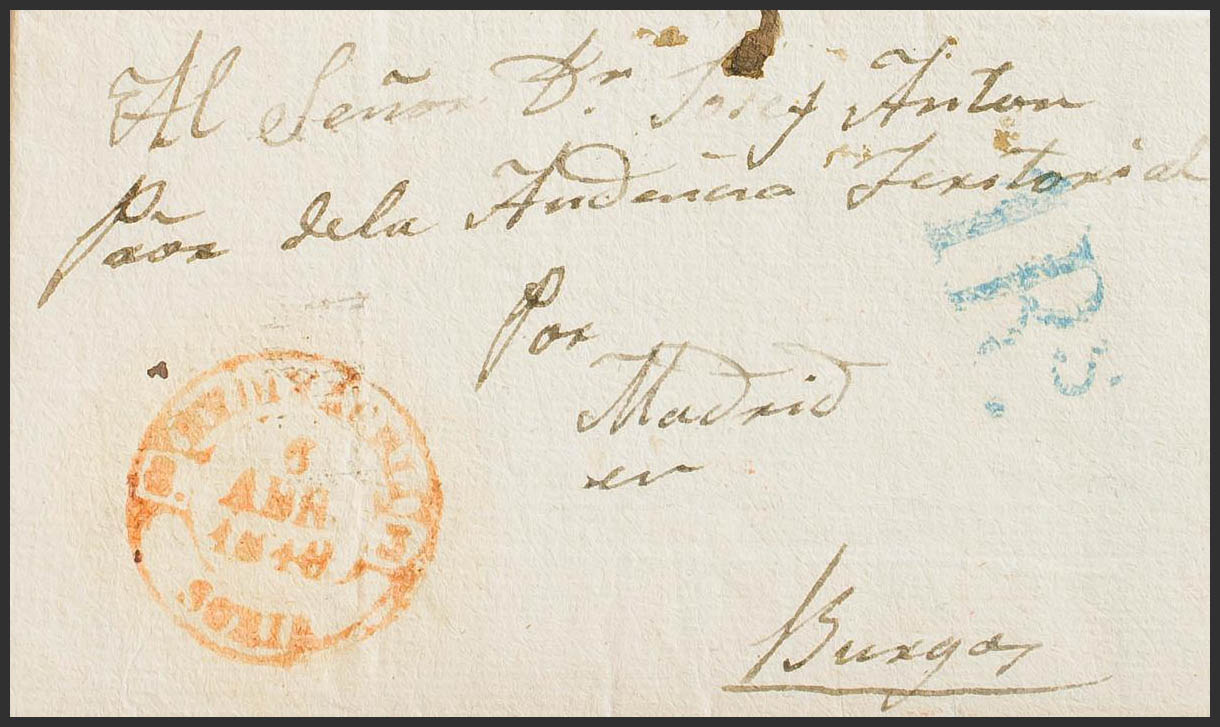 Al Señor Dn. Josef Anton
Pror dela Audencia Teritorial
Por
Madrid
en
Burgos
1R.
6
ABR
1848
SORIA